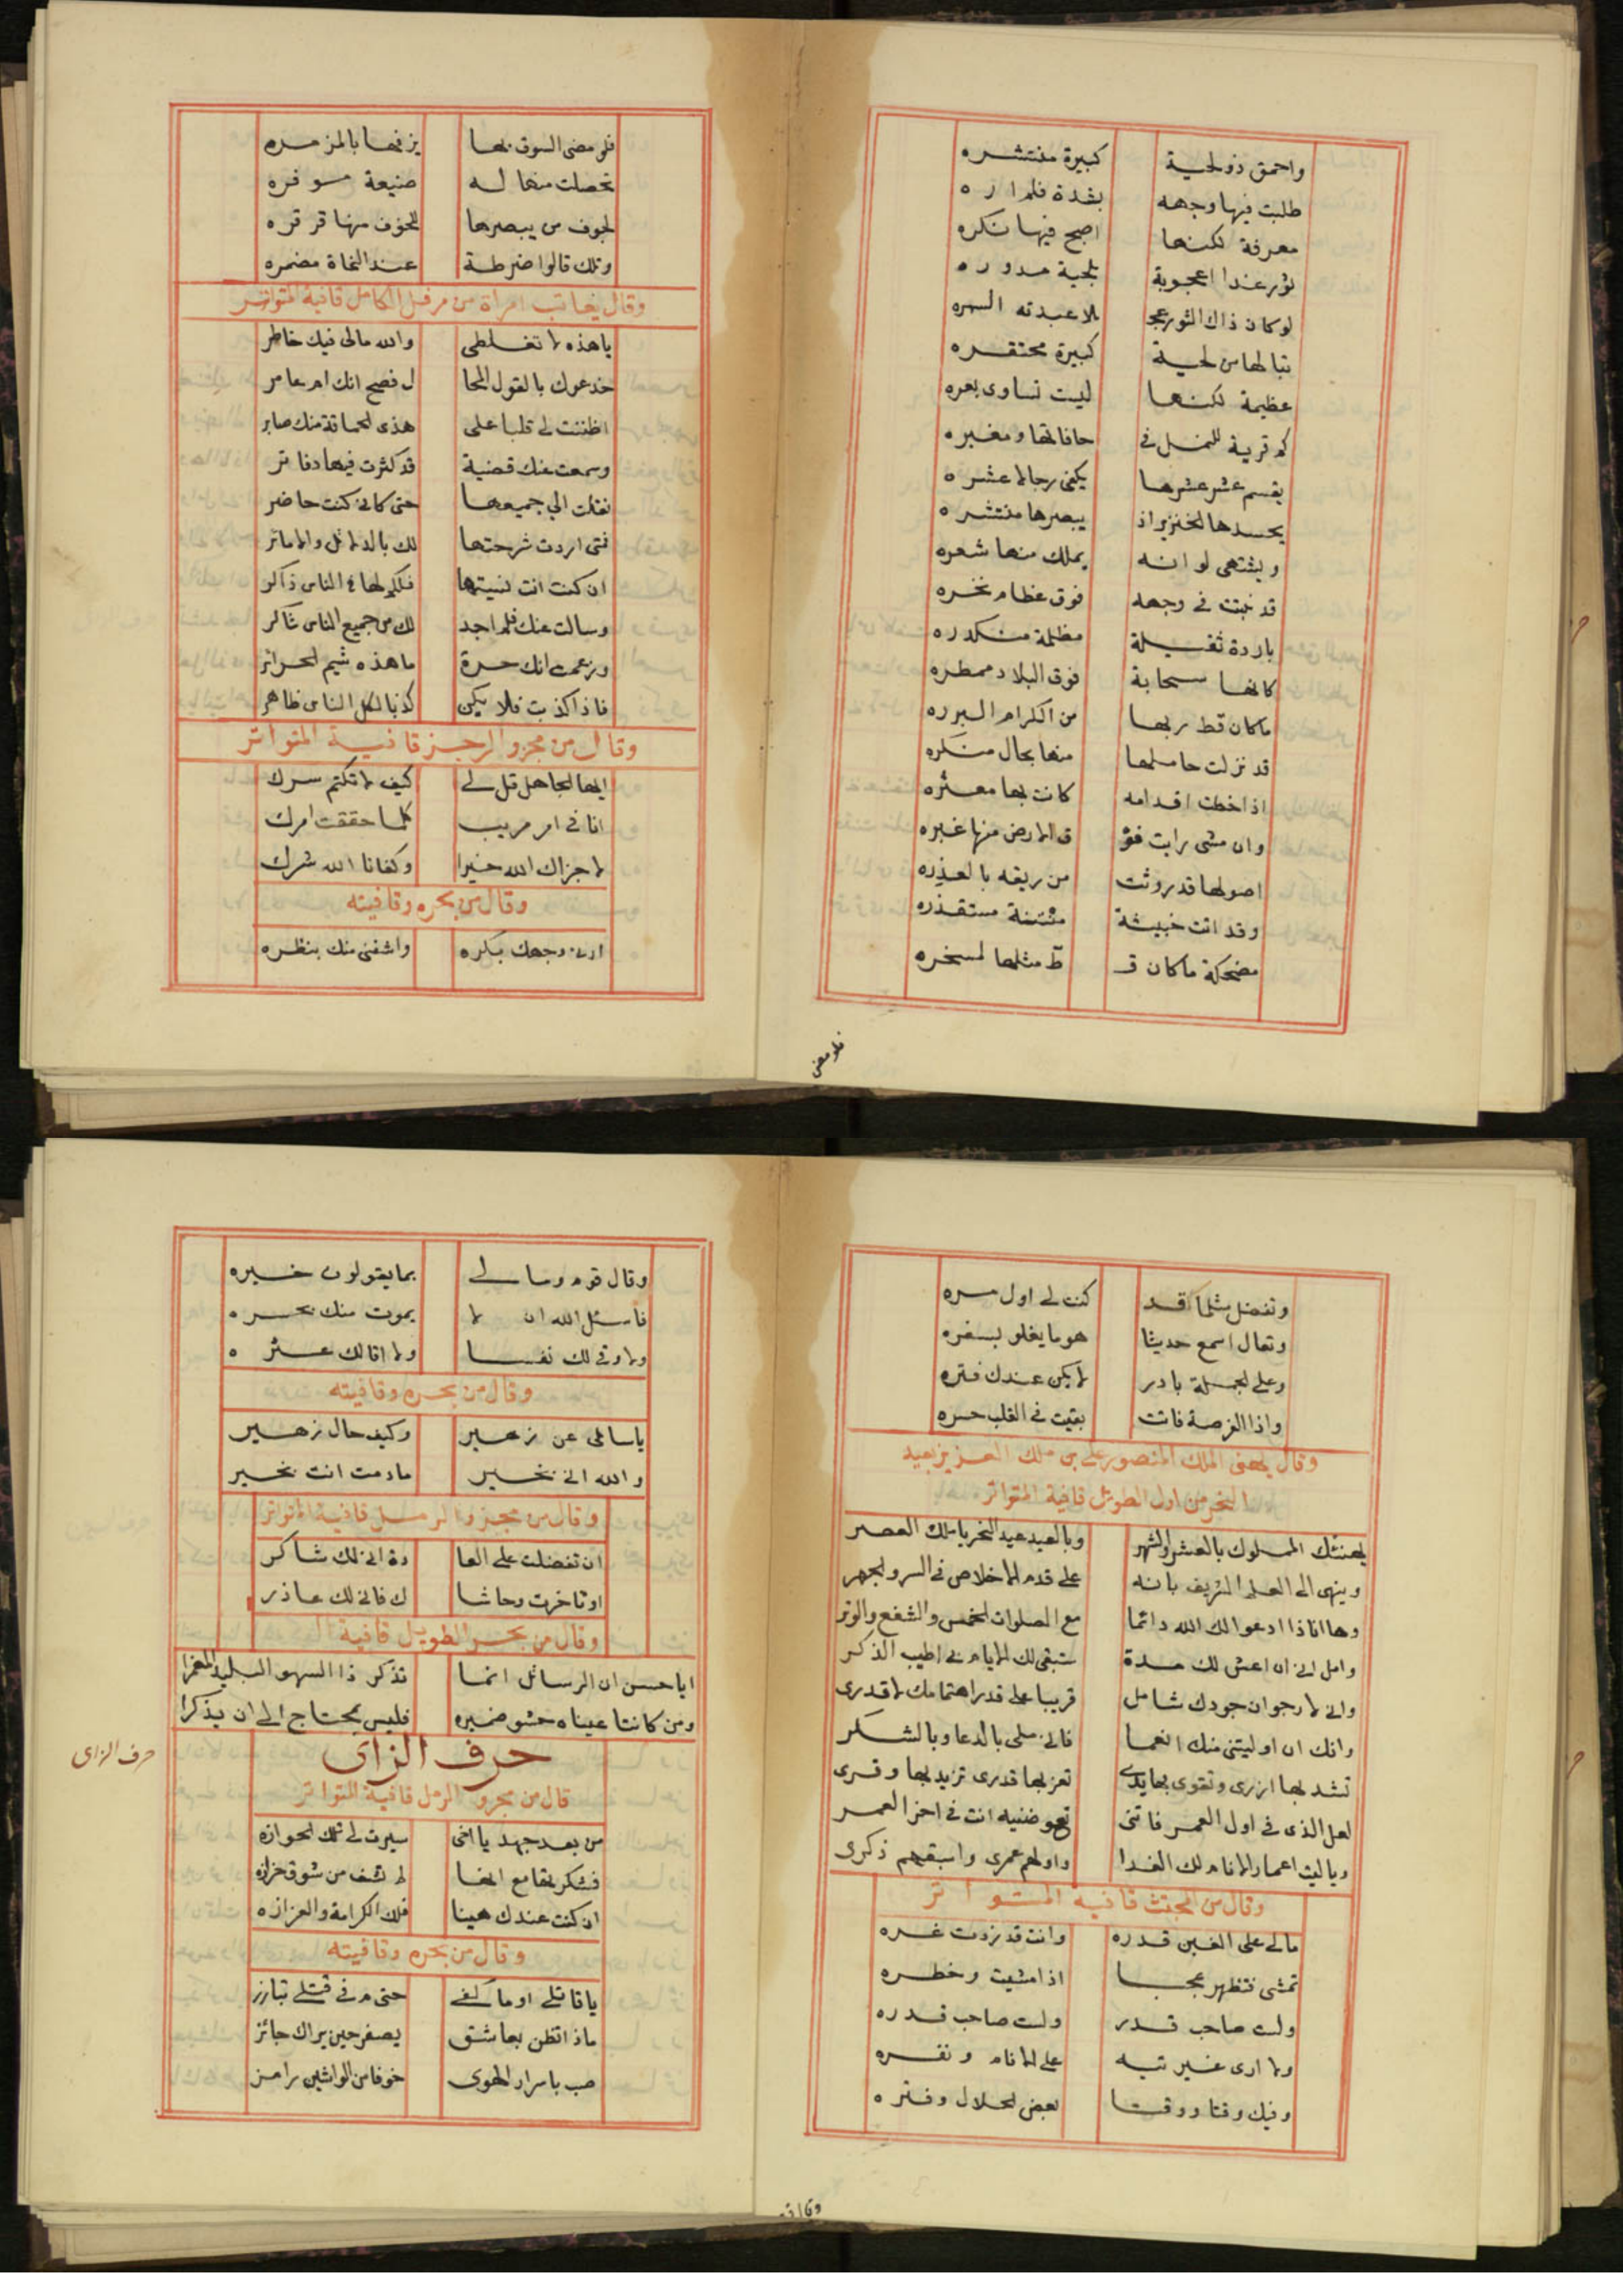 واحمق ذو لحية كبيرة منتشره
طلبت فيها وجهه بشدة فلم اره
معرفة لكنها اصبح فيها نكره
ثور غدا اعجوبة بلحية مدوره
لو كان ذاك الثور عجـ ـلا عبدته السمره
تبا لها من لحية كبيرة محتقره
عظيمة لكنها ليست تساوى بعره
كم قرية للنمل فى حافاتها ومغبره
يقسم عشر عشرها يكفى رجالا عشره
يحسدها الخنزير اذ يبصرها منتشره
ويشتهى لو انه يملك منها شعره
قد نبتت فى وجهه فوق عظام نخره
باردة ثقيلة مظلمة منكدره
كانها سحابة فوق البلاد ممطره
ماكان قط ربها من الكرام البرره
قد نزلت حاملها منها بحال منكره
اذا خطت اقدامه كانت بها معثره
وان مشى رايت فو ق الارض منها غبره
اصولها قد روثت من ريقه بالعذره
وقد اتت خبيثة منتنة مستقذره
مضحكة ماكان قـ ـط مثلها لمسخره
فلو مضى
فلو مضى السوق بها يزفها بالمزمره
تحصلت منها له صنيعة موفره
لجوف من يبصرها للخوف منها قرقره
وتلك قالوا ضرطة عند النحاة مضمره
وقال يعاتب امراة من مرفل الكامل قافية المتواتر
ياهذه لا تغلطى والله مالى فيك خاطر
خدعوك بالقول المحا ل فصح انك ام عامر
اظننت لى قلبا على هذى الحماقة منك صابر
وسمعت عنك قضية قد كثرت فيها دفاتر
نقلت الي جميعها حتى كانى كنت حاضر
فمتى اردت شرحتها لك بالدلائل والاماتر
ان كنت انت نسيتها فلكم لها فى الناس ذاكر
وسالت عنك فلم اجد لك من جميع الناس شاكر
وزعمت انك حرة ما هذه شيم الحرائر
فاذا كذبت فلا يكن كذبا لكل الناس ظاهر
وقال من مجزو الرجز قافية المتواتر
ايها الجاهل قل لى كيف لا تكتم سرك
انا فى امر مريب كلما حققت امرك
لا جزاك الله خيرا وكفانا الله شرك
وقال من بحره وقافيته
ارنى وجهك بكره واشفنى منك بنظره
وتفضل مثلما قد كنت لى اول مره
وتعال اسمع حديثا هو ما يغلو بسفره
وعلى الجملة بادر لا يكن عندك فتره
واذا الفرصة فاتت بقيت فى القلب حسره
وقال يهنى الملك المنصور على بن ملك العزيز بعيد
النحر من اول الطويل قافية المتواتر
يهنئك المملوك بالعشر والشهر وبالعيد عيد النحر يا ملك العصر
وينهى الى العلم الشريف بانه على قدم الاخلاص فى السر والجهر
وها انا ذا ادعو الك الله دائما مع الصلوات الخمس والشفع والوتر
وامل انى ان اعش لك مدة ستبقى لك الايام فى اطيب الذكر
وانى لارجو ان جودك شامل قريبا على قدر اهتمامك لا قدرى
وانك ان اوليتنى منك انعما فانى ملى بالدعا وبالشكر
تشد بها ازرى وتقوى بها يدى تعز بها قدرى تزيد بها وفرى
لعل الذى فى اول العمر فاتنى تعوضنيه انت فى اخر العمر
وياليت اعمار الانام لك الفدا واولهم عمرى واسبقهم ذكرى
وقال من المجتث قافيه المتواتر
مالى على الغبن قدره وانت قد زدت غره
تمشى فتظهر عجبا اذا مشيت وخطره
ولست صاحب قدر ولست صاحب قدره
ولا ارى غير تيه على الانام ونفره
وفيك وقتا ووقتا بعض الحلال وفتره
وقال قوم
وقال قوم ومالى بما يقولون خبره
فاسئل الله ان لا يموت منك بحسره
ولا وقى لك نفسا ولا اقالك عثره
وقال من بحره وقافيته
يا سائلى عن زهير وكيف حال زهير
والله انى بخير مادمت انت بخير
وقال من مجزو الرمل قافية المتواتر
ان تفضلت على العا دة انى لك شاكر
او تاخرت وحاشا ك فانى لك عاذر
وقال من بحر الطويل قافية ال
ايا حسن ان الرسائل انما تذكر ذا السهو البليد المغمرا
ومن كانتا عيناه حشو ضميره فليس بمحتاج الى ان يذكرا
حرف الزاى
حرف الزاى
قال من مجزو الرمل قافية المتواتر
من بعد جهد يا اخى سيرت لى تلك الحوازه
فشكرتها مع انها لم تشف من شوق حزازه
ان كنت عندك هينا فلك الكرامة والعزازه
وقال من بحره وقافيته
يا قاتلى اوما كفى حتى م فى قتلى تبارز
ماذا تظن بعاشق يصفر حين يراك جائز
صب باسرار الهوى خوفا من الواشين رامز